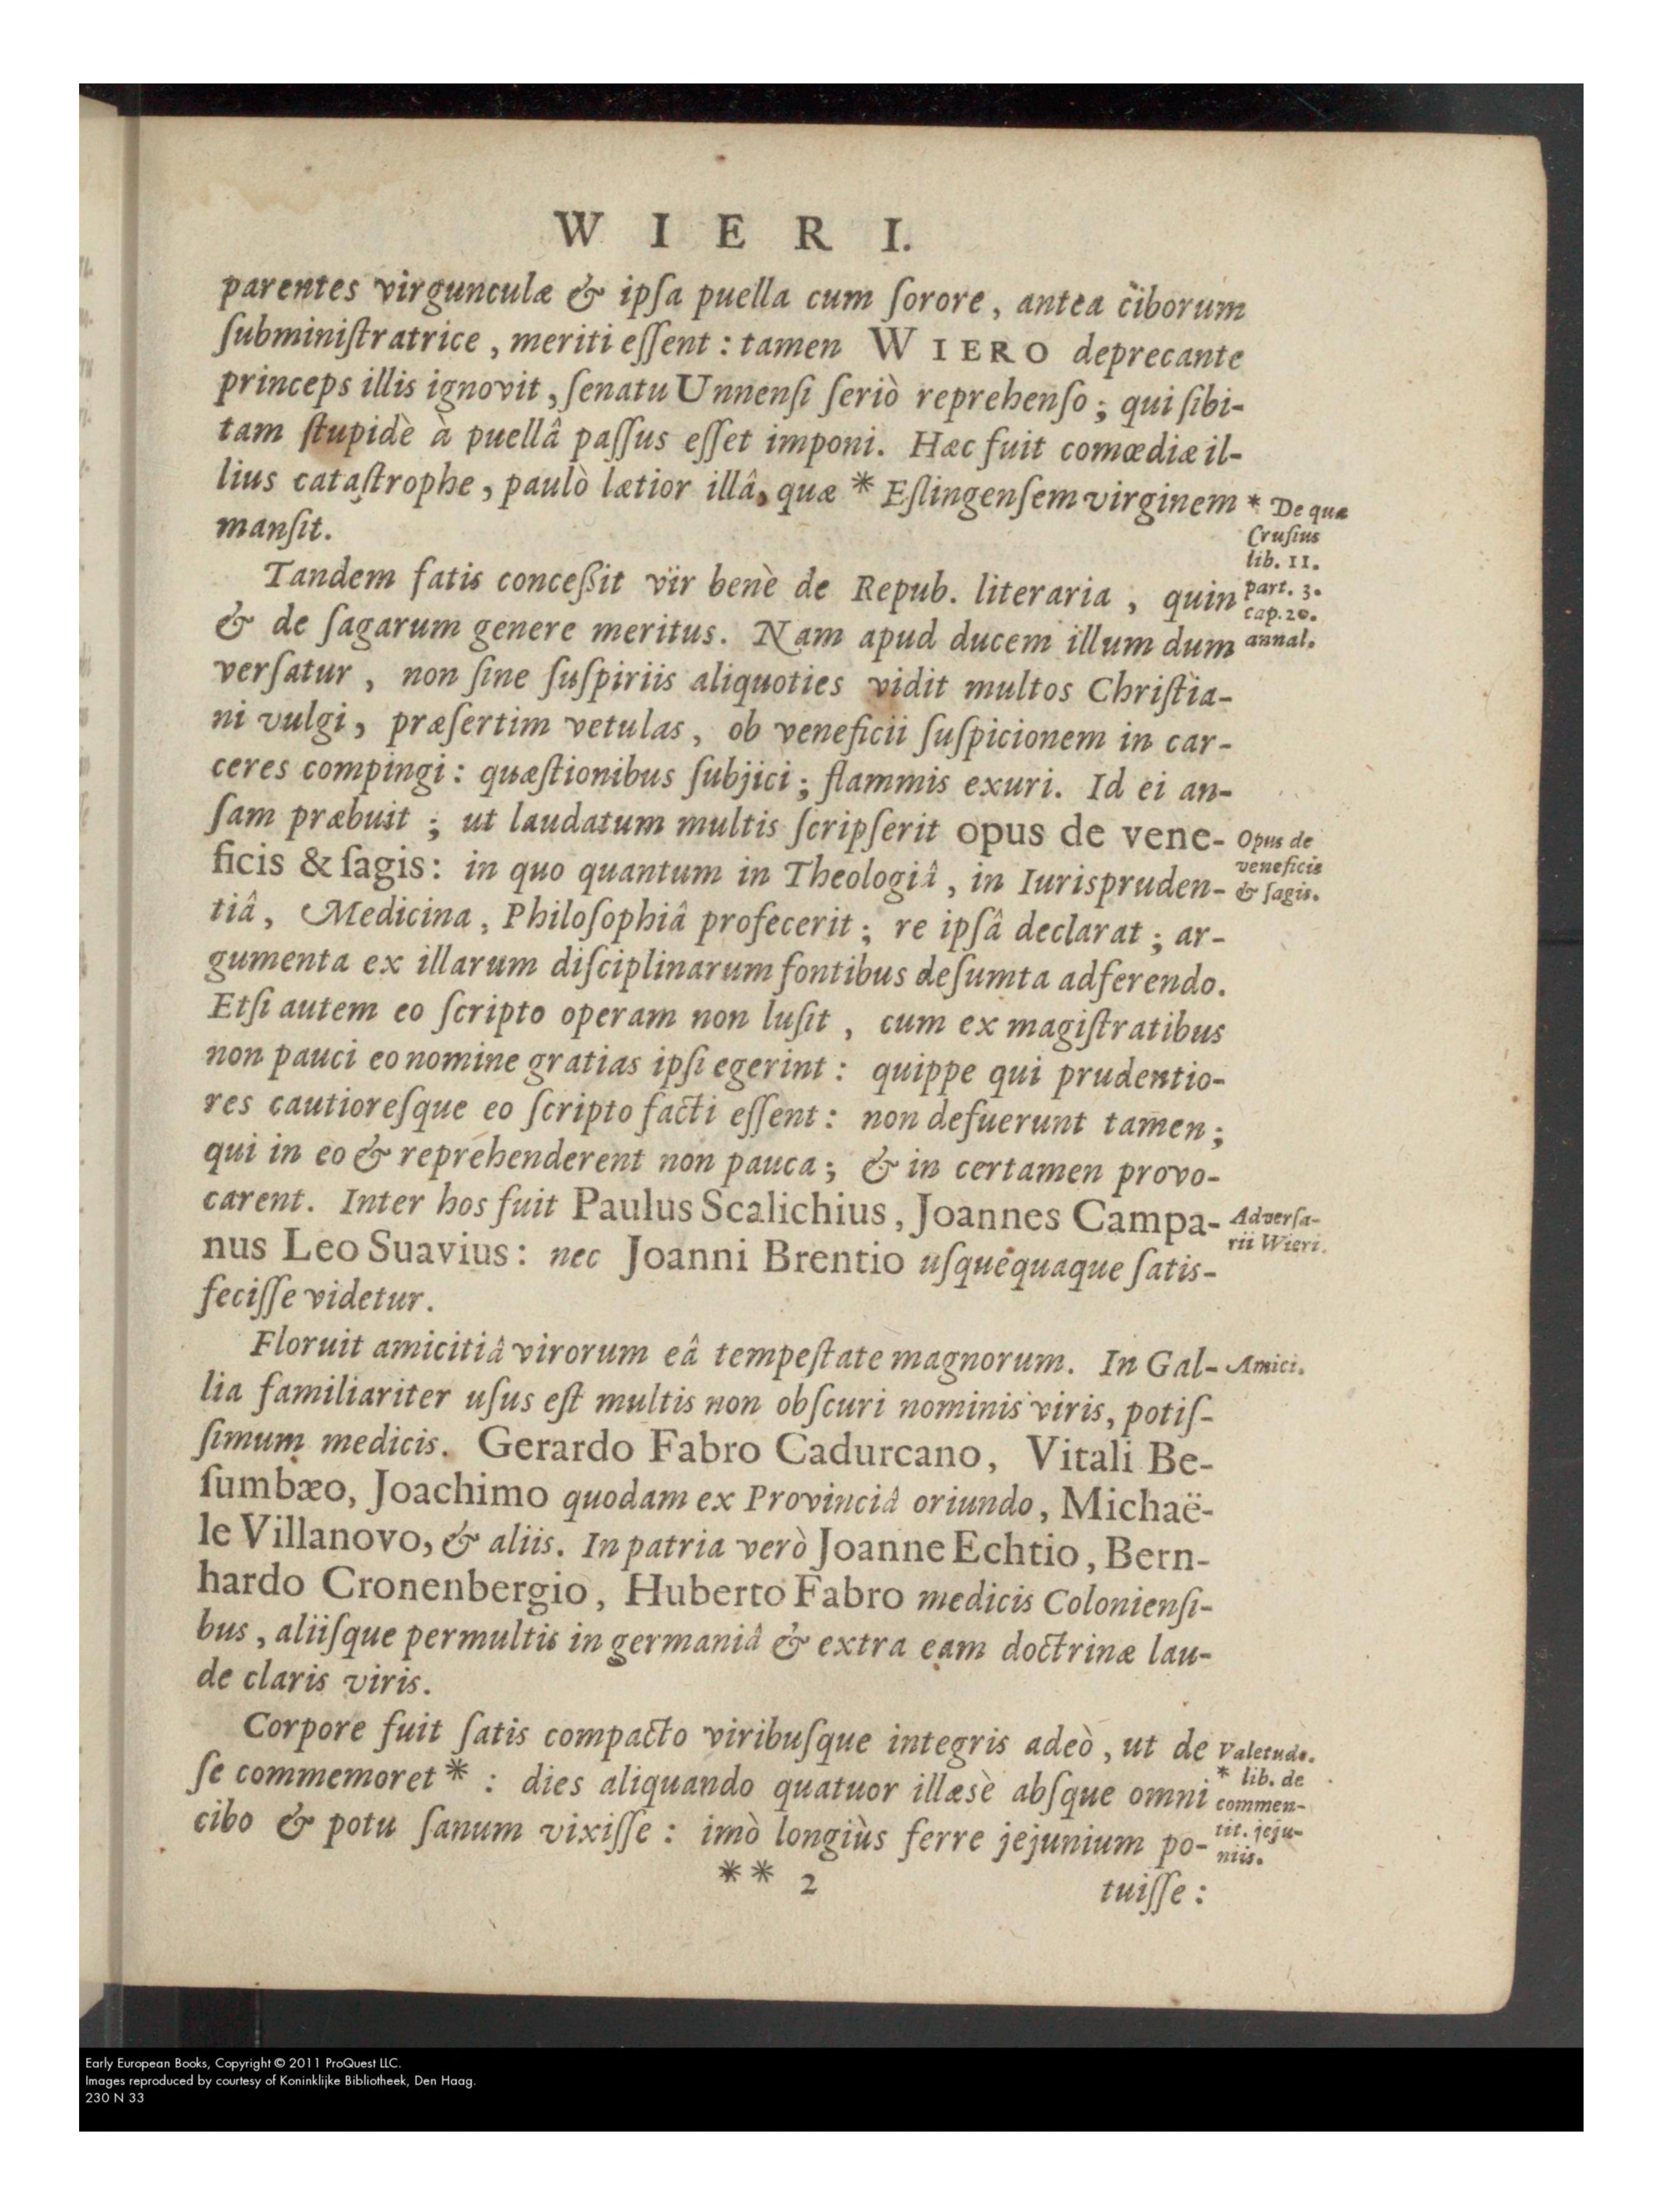 WIERI.
parentes virgunculæ & ipſa puella cum ſorore, antea ciborum
ſubminiſtratrice, meriti eſſent: tamen WIERO deprecante
princeps illis ignovit, ſenatu Unnenſi ſeriò reprehenſo; qui ſibi-
tam ſtupidè à puellâ paſſus eſſet imponi. Hæc fuit comœdiæ il-
lius cataſtrophe, paulò lætior illâ, quæ * Eſlingenſem virginem
manſit.
* De qua
Cruſius
lib. 11.
part. 3.
cap. 20.
annal.
Tandem fatis conceßit vir benè de Repub. literaria, quin
& de ſagarum genere meritus. Nam apud ducem illum dum
verſatur, non ſine ſuſpiriis aliquoties vidit multos Chriſtia-
ni vulgi, præſertim vetulas, ob veneficii ſuſpicionem in car-
ceres compingi: quæſtionibus ſubjici; flammis exuri. Id ei an-
ſam præbuit; ut laudatum multis ſcripſerit opus de vene-
ficis & ſagis: in quo quantum in Theologiâ, in Iurispruden-
tiâ, Medicina, Philoſophiâ profecerit; re ipſâ declarat; ar-
gumenta ex illarum diſciplinarum fontibus deſumta adferendo.
Opus de
veneficis
& ſagis.
Etſi autem eo ſcripto operam non luſit, cum ex magiſtratibus
non pauci eo nomine gratias ipſi egerint: quippe qui prudentio-
res cautioreſque eo ſcripto facti eſſent: non defuerunt tamen;
qui in eo & reprehenderent non pauca; & in certamen provo-
carent. Inter hos fuit Paulus Scalichius, Joannes Campa-
nus Leo Suavius: nec Joanni Brentio uſquequaque ſatis-
feciſſe videtur.
Adverſa-
rii Wieri.
Floruit amicitiâ virorum eâ tempeſtate magnorum. In Gal-
Amici.
lia familiariter uſus eſt multis non obſcuri nominis viris, potiſ-
ſimum medicis. Gerardo Fabro Cadurcano, Vitali Be-
ſumbæo, Joachimo quodam ex Provinciâ oriundo, Michaë-
le Villanovo, & aliis. In patria verò Joanne Echtio, Bern-
hardo Cronenbergio, Huberto Fabro medicis Colonienſi-
bus, aliiſque permultis in germaniâ & extra eam doctrinæ lau-
de claris viris.
Corpore fuit ſatis compacto viribuſque integris adeò, ut de
ſe commemoret * : dies aliquando quatuor illæsè abſque omni
cibo & potu ſanum vixiſſe: imò longiùs ferre jejunium po-
Valetudo.
* lib. de
commen-
tit. jeju-
niis.
** 2
tuiſſe:
Early European Books, Copyright © 2011 ProQuest LLC.
Images reproduced by courtesy of Koninklijke Bibliotheek, Den Haag.
230 N 33